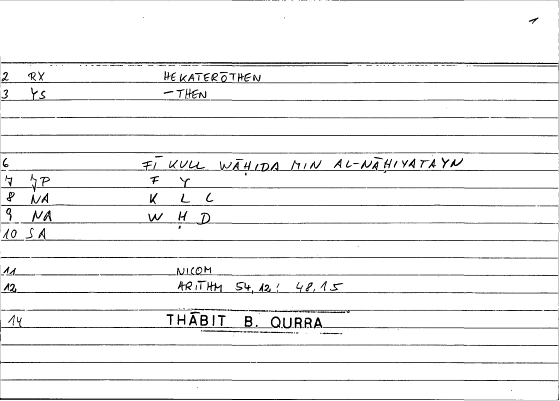 1
2 RX HEKATERŌTHEN
3 YS –THEN
6 FĪ KULL WĀḤIDA MIN AL-NĀḤIYATAYN
7 JP F Y
8 NA K L L
9 NA W Ḥ D
10 SA
11 NICOM
12 ARITHM 54,12: 48,15
14 THĀBIT B. QURRA